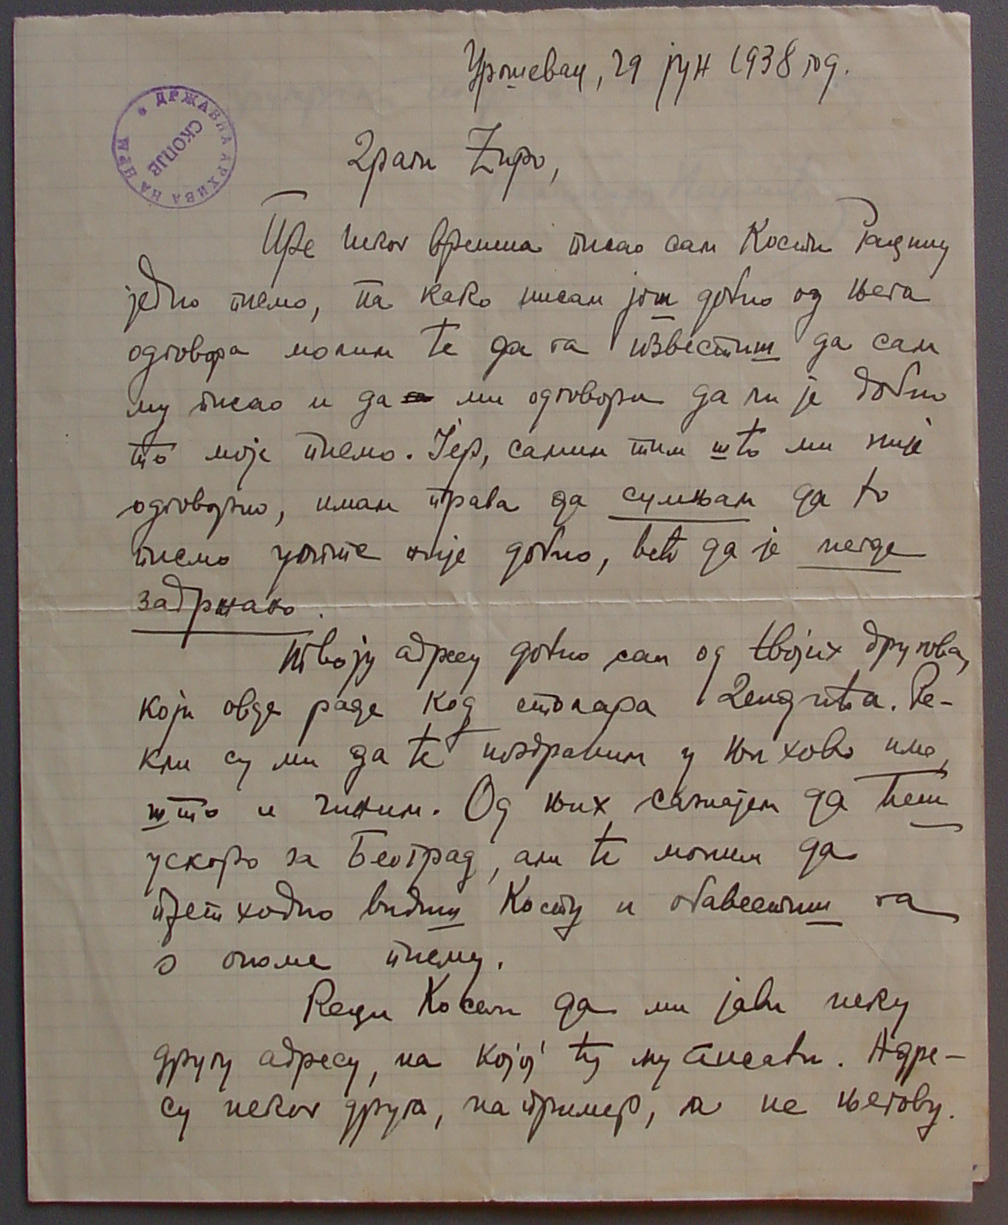 Урошевац, 29 јун 1938 год.
ДРЖАВНА АРХИВА НА НРМ
СКОПЈЕ
Драги Жиро,
Пре неког времена писао сам Кости Рацину
једно писмо, па како нисам још добио од њега
одговора молим те да га известиш да сам
му писао и да ми одговори да ли је добио
то моје писмо. Јер, самим тим што ми није
одговорио, имам права да сумњам да то
писмо уопште није добио, већ да је негде
задржано.
Твоју адресу добио сам од твојих другова,
који овде раде код столара. Ре-
кли су ми да те поздравим у њихово име,
што и чиним. Од њих сазнајем да ћеш
ускоро за Београд, али те молим да
претходно видиш Косту и обавестиш га
о ономе писму.
Реци Кости да ми јави неку
другу адресу, на којој ћу му писати. Адре-
су неког друга, на пример, а не његову.